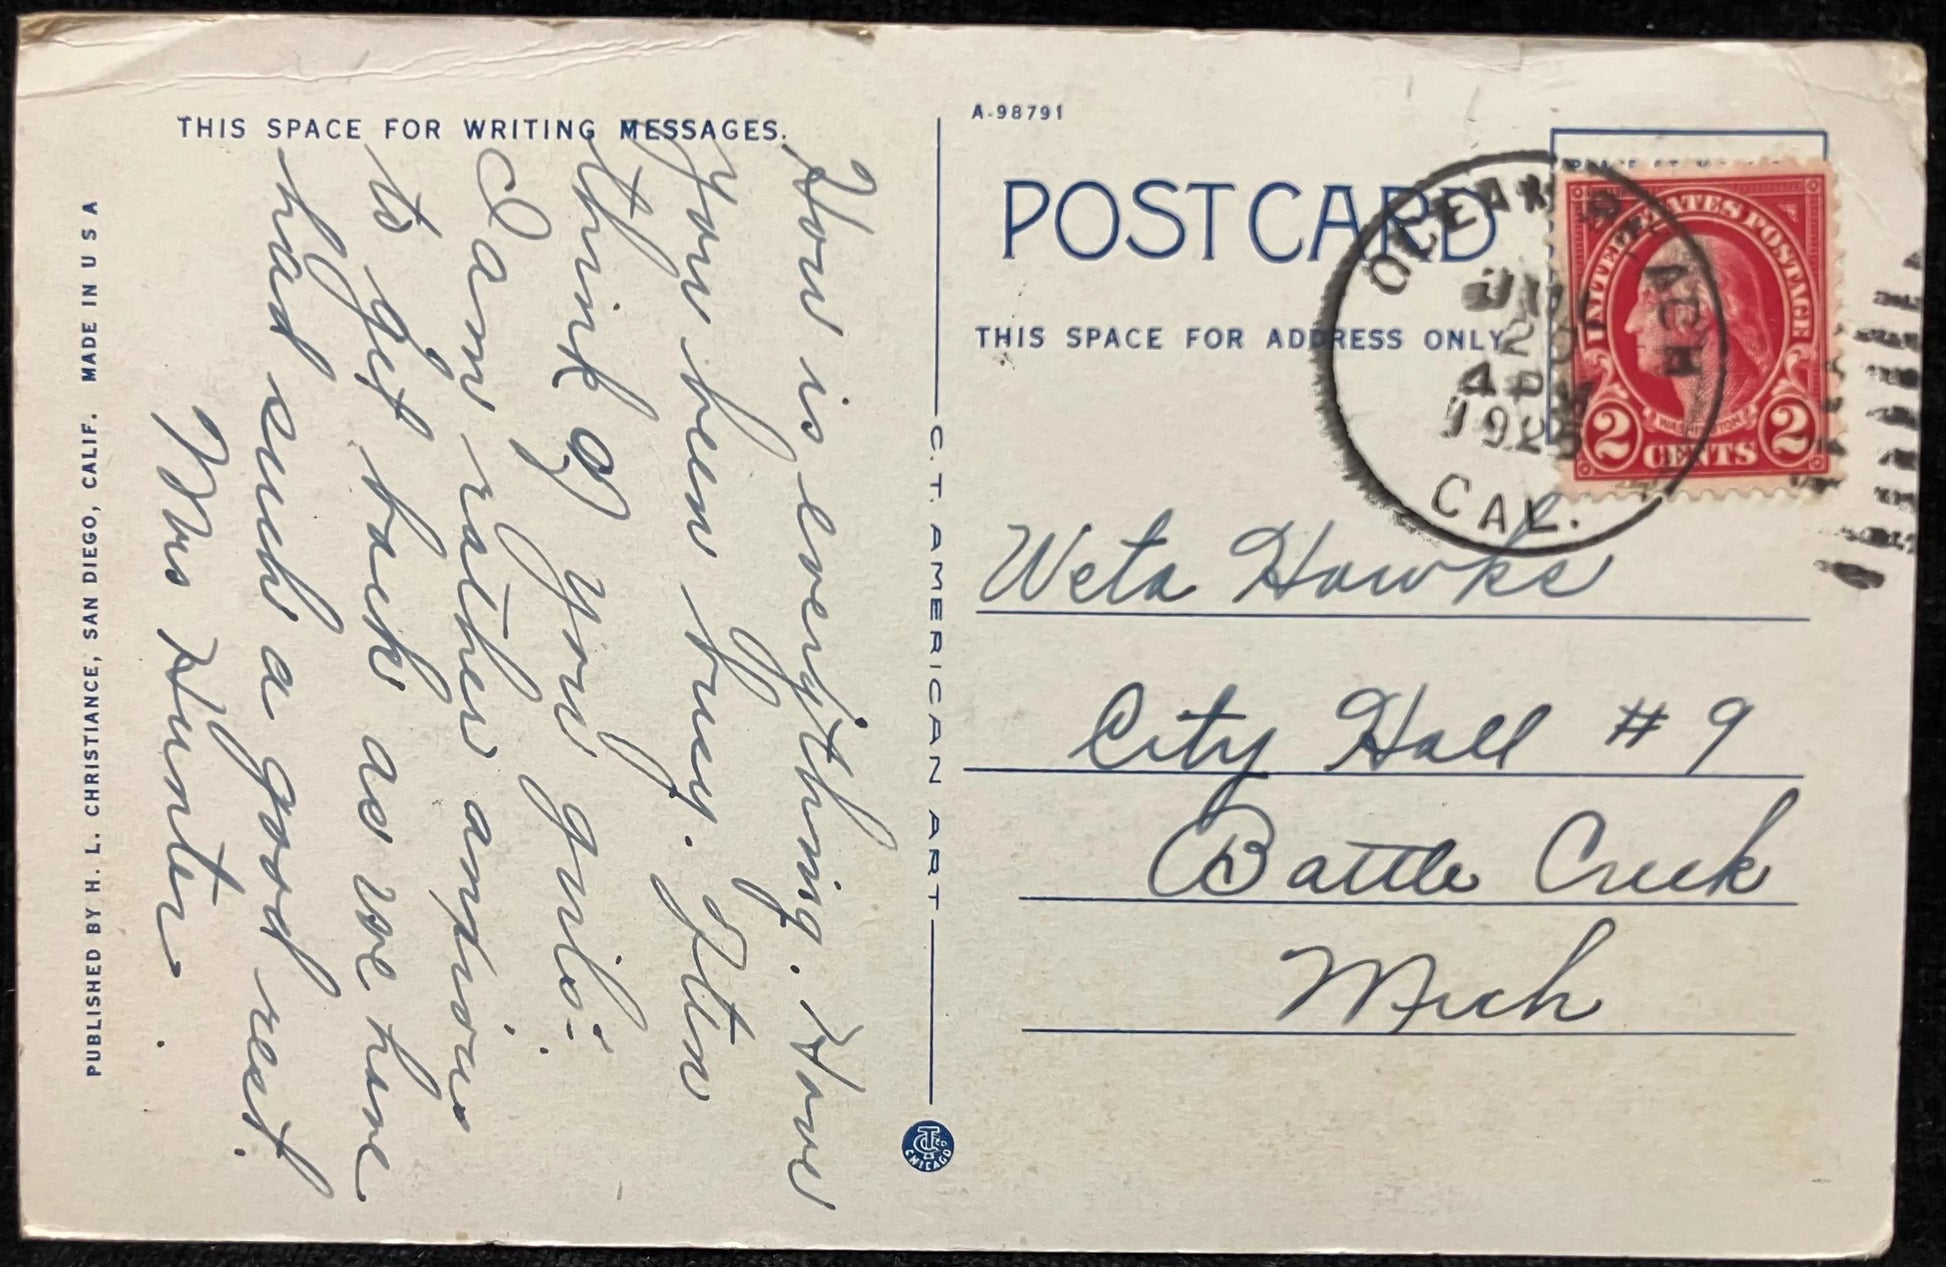 THIS SPACE FOR WRITING MESSAGES.
How is everything. Have
you been busy. Often
think of you girls.
I am rather anxious
to get back as we have
had such a good rest.
Mrs Hunter.
PUBLISHED BY H. L. CHRISTIANCE, SAN DIEGO, CALIF. MADE IN U S A
C. T. AMERICAN ART
CHICAGO
A-98791
POST CARD
THIS SPACE FOR ADDRESS ONLY
BEACH
CAL.
UNITED STATES POSTAGE
WASHINGTON
2 CENTS 2
Weta Hawks
City Hall #9
Battle Creek
Mich